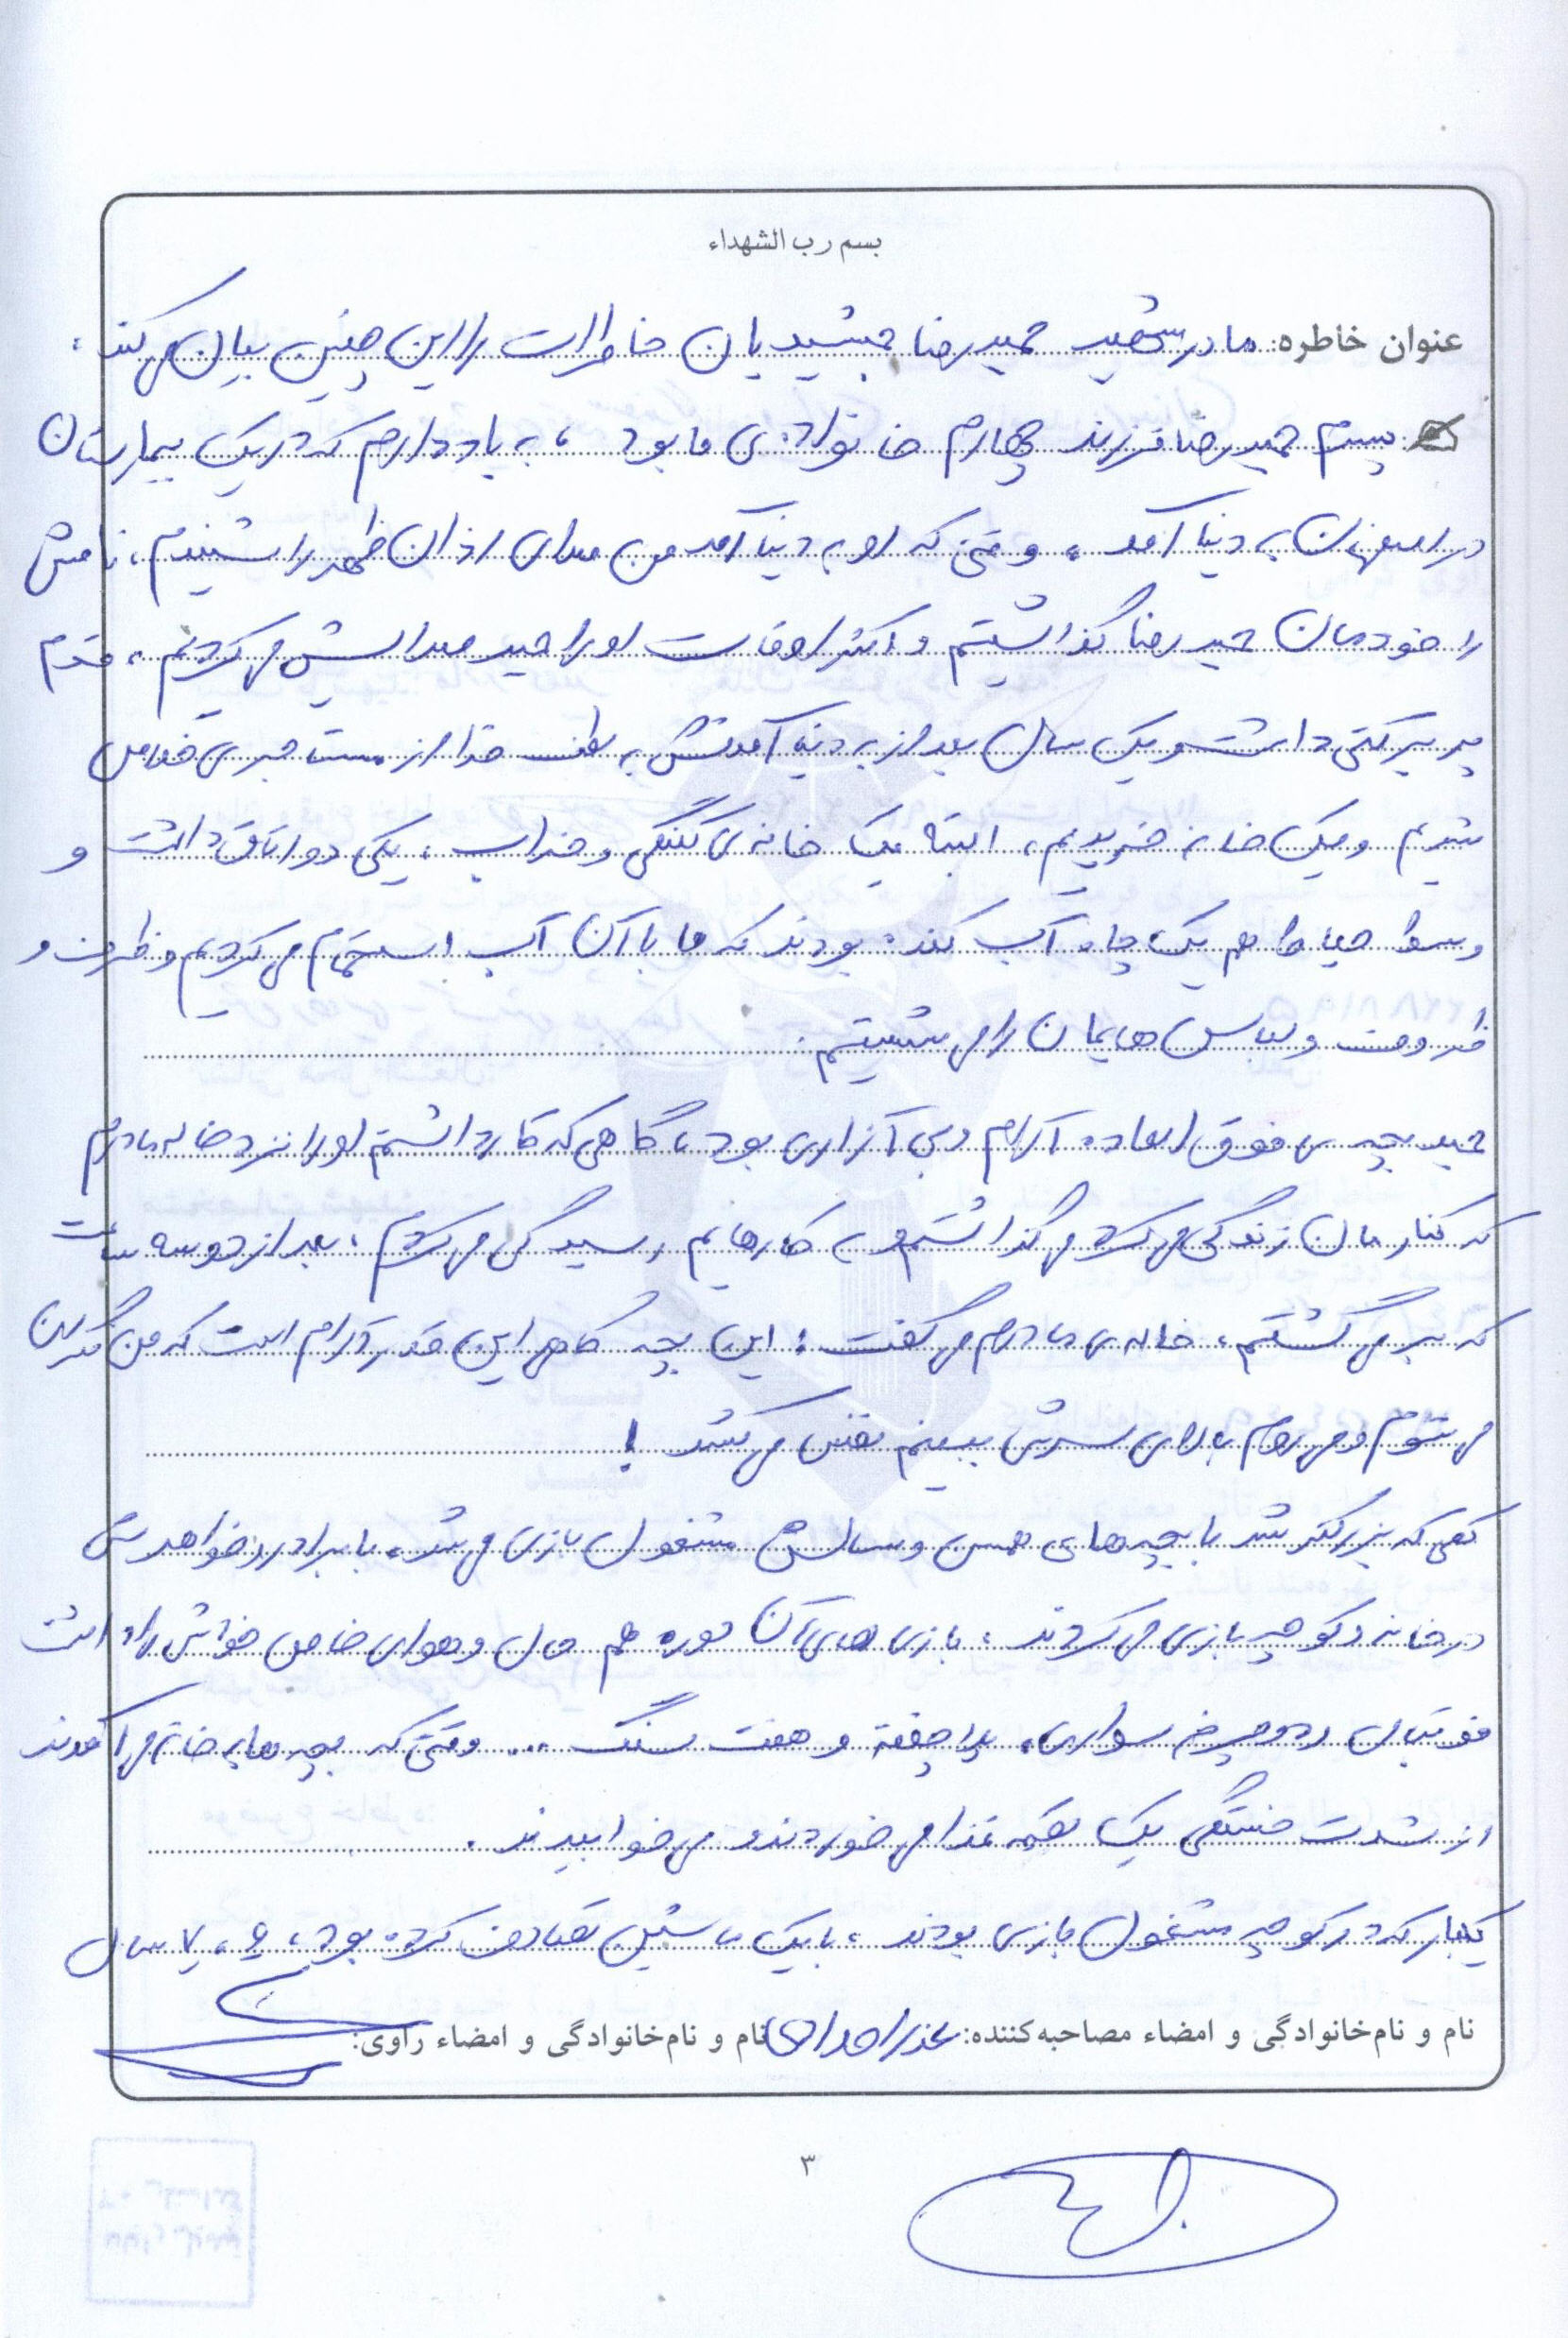 بسم رب الشهداء
عنوان خاطره: مادر شهید حمیدرضا جمشیدیان خاطرات را این چنین بیان می کند:
پسرم حمیدرضا فرزند چهارم خانواده ی ما بود، به یاد دارم که در یک بیمارستان
در اصفهان به دنیا آمد. وقتی که او به دنیا آمد من صدای اذان ظهر را شنیدم، نامش
را خودمان حمیدرضا گذاشتیم و اکثر اوقات او را حمید صدایش می کردیم، قدم
پر برکتی داشت و یک سال بعد از به دنیا آمدنش به لطف خدا از مستاجری خلاص
شدیم و یک خانه خریدیم، البته یک خانه ی کلنگی و خراب، یکی دو اتاق داشت و
وسط حیاط هم یک چاه آب کنده بودند که ما با آن آب استحمام می کردیم و ظرف و
ظروف و لباس هایمان را می شستیم.
حمید بچه ی فوق العاده آرام و بی آزاری بود، گاهی که کار داشتم او را نزد خاله مادرم
که کنارمان زندگی می کرد می گذاشتم و به کارهایم رسیدگی می کردم، بعد از دو سه ساعت
که بر می گشتم، خاله ی مادرم می گفت: این بچه گاهی این قدر آرام است که من نگران
می شوم و می روم بالای سرش ببینم نفس می کشد!
کمی که بزرگتر شد با بچه های همسن و سالش مشغول بازی می شد. با برادر و خواهرش
در خانه و کوچه بازی می کردند، بازی های آن دوره هم حال و هوای خاص خودش را داشت
فوتبال، دوچرخه سواری، یه لپ چفته و هفت سنگ ... وقتی که بچه ها به خانه می آمدند
از شدت خستگی یک لقمه غذا می خوردند و می خوابیدند.
یکبار که در کوچه مشغول بازی بودند، با یک ماشین تصادف کرده بود، ۶، ۷ سال
نام و نام‌خانوادگی و امضاء مصاحبه‌کننده: عذرا نام و نام‌خانوادگی و امضاء راوی:
۳